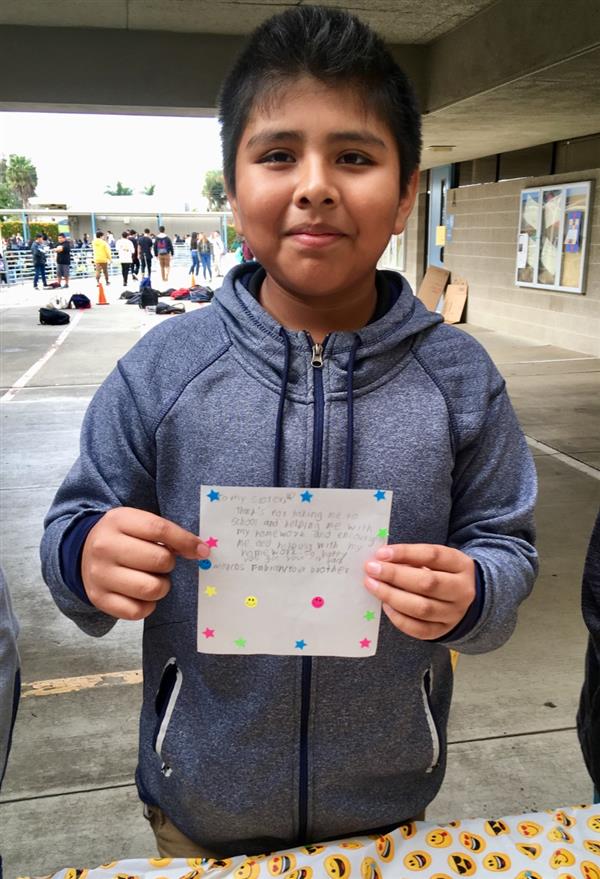 to my sister
thank's for taking me to
school and helping me with
my homework and
me and helping with my
homework so happy
you
Fabian your brother